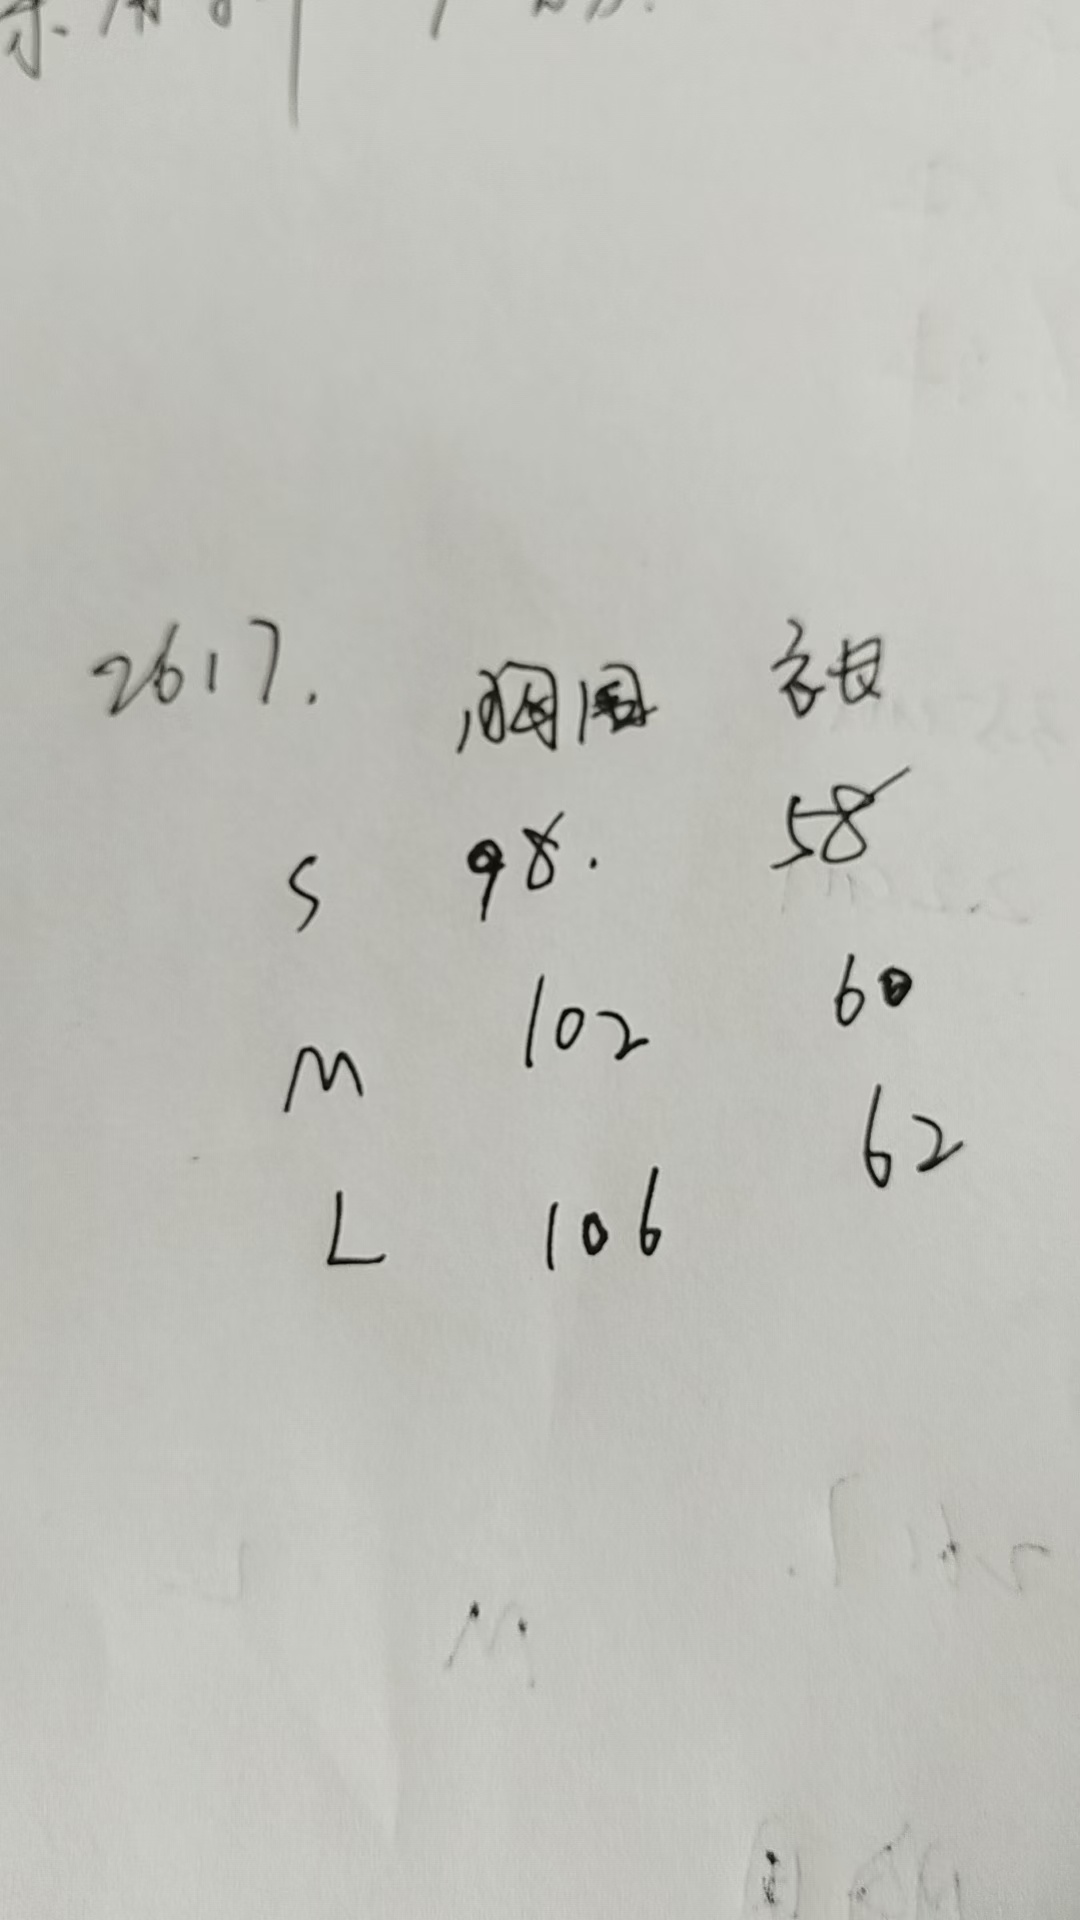 2617. 胸围 衣长
S 98. 58
M 102 60
L 106 62